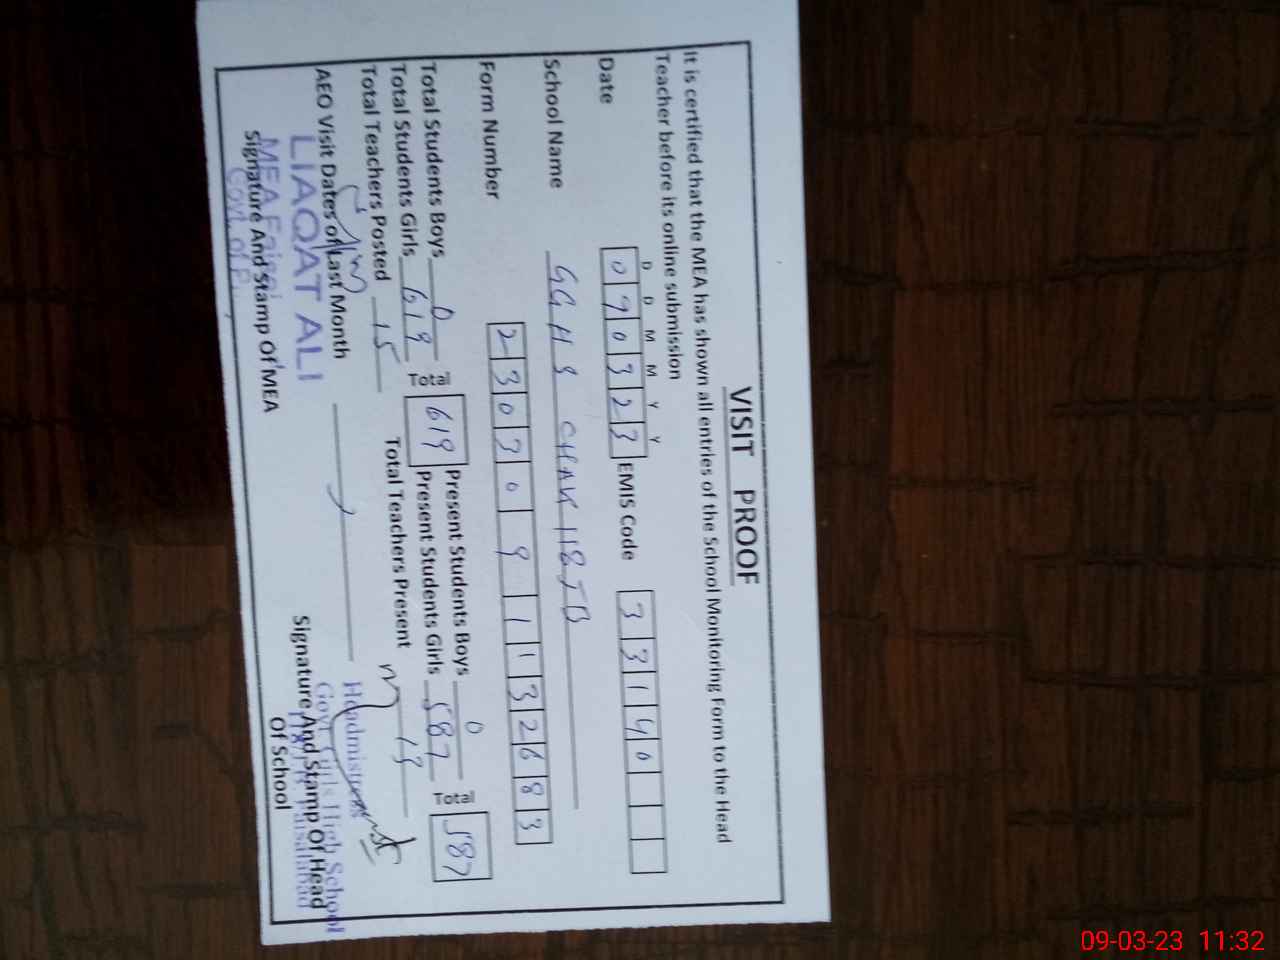 VISIT PROOF
It is certified that the MEA has shown all entries of the School Monitoring Form to the Head
Teacher before its online submission
D D M M Y Y
Date 0 9 0 3 2 3 EMIS Code 3 3 1 4 0
School Name GGHS CHAK 118 JB
Form Number 2 3 0 3 0 9 1 1 3 2 6 8 3
Total Students Boys 0 Total 619 Present Students Boys 0 Total 587
Total Students Girls 619 Present Students Girls 587
Total Teachers Posted 15 Total Teachers Present 13
AEO Visit Dates of Last Month
LIAQAT ALI
MEA
Govt. of
Signature And Stamp Of MEA
Headmistress
Govt Girls High School
118 Faisalabad
Signature And Stamp Of Head
Of School
09-03-23 11:32